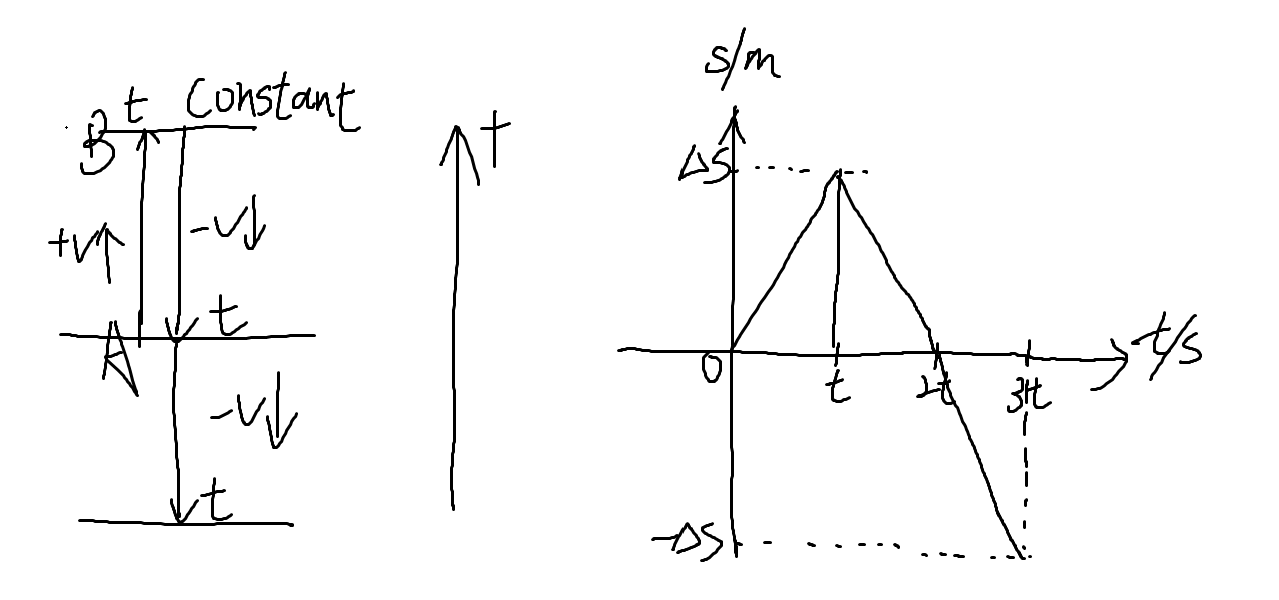 t constant
B
+v↑
-v↓
t
A
-v↓
t
+
s/m
Δs
0
t
2t
3t
t/s
-Δs